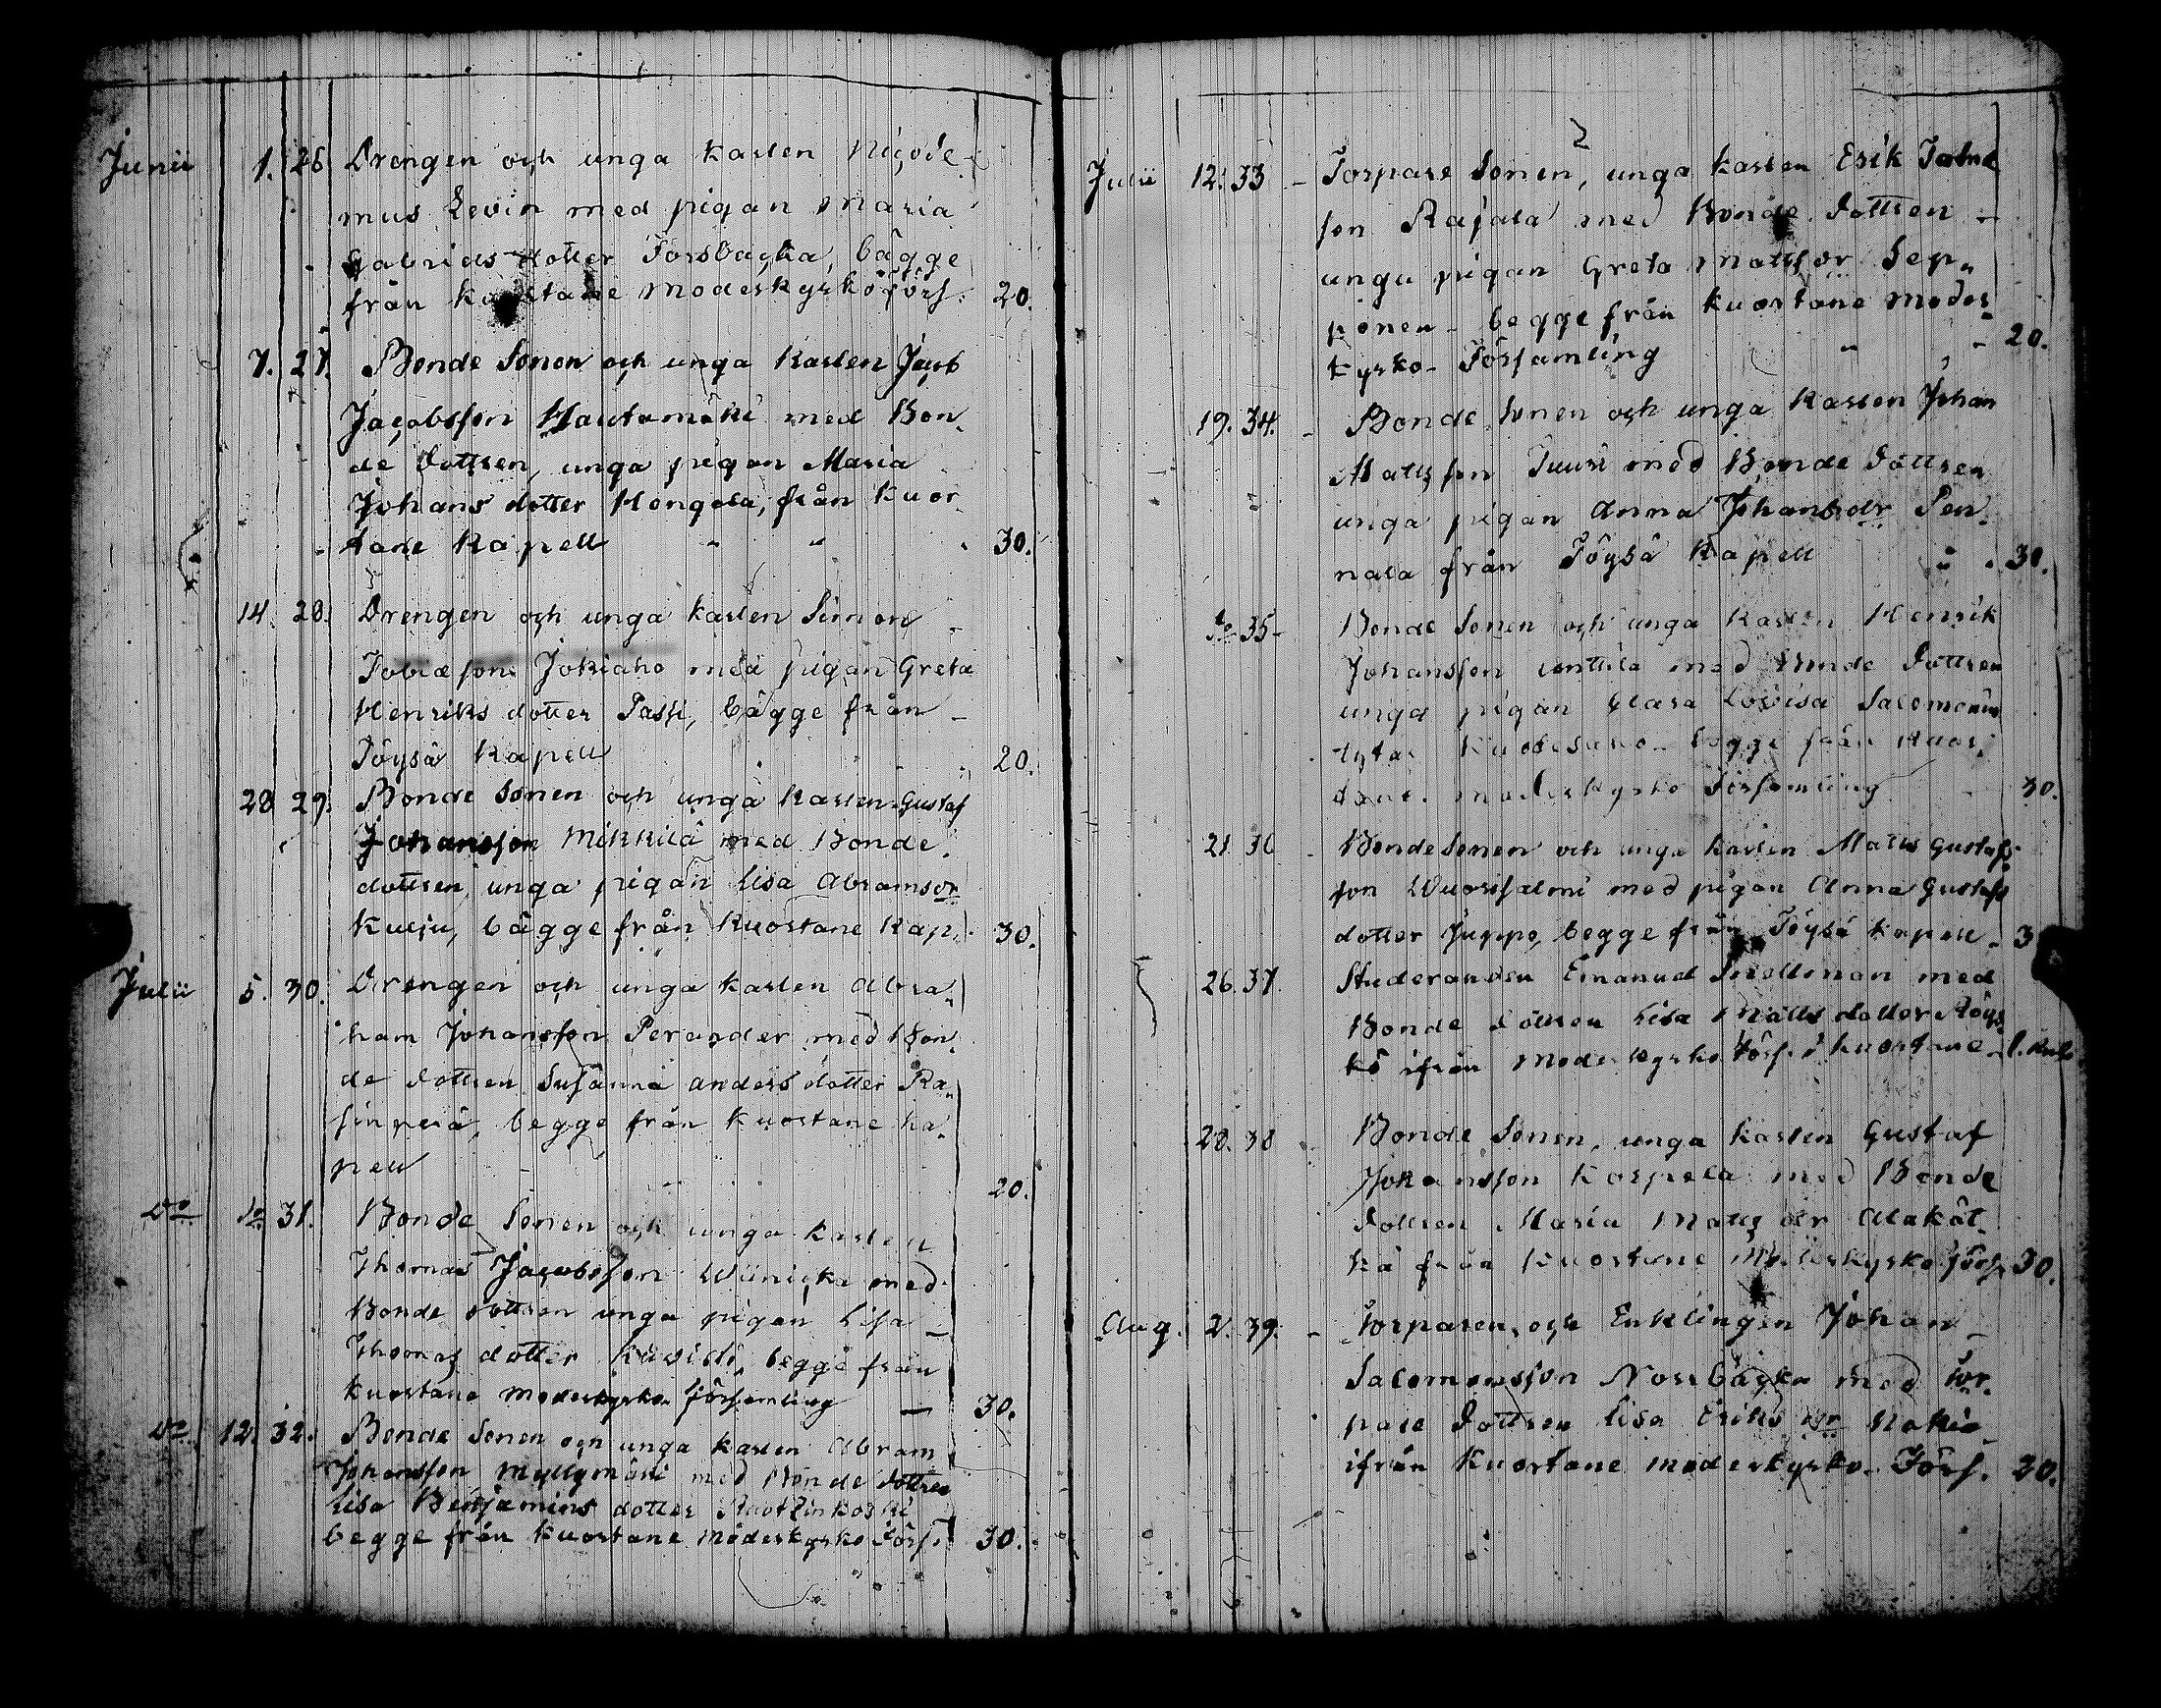 Junii 1. 26 Drengen och unga Karlen Nicode-
mus Levin med pigan Maria
Gabriels dotter Forsbacka, bägge
från Kuortane Moderkyrko förs. 20.
7. 27. Bonde Sonen och unga Karlen Jacob
Jacobsson Hautamäki med Bon-
de Dottren, unga pigan Maria
Johans dotter Kongola, från Kuor-
tane Kapell 30.
14. 28. Drengen och unga Karlen Simon
Tobiæson Jokiaho med pigan Greta
Henriks dotter Passi, bägge från
Töysä Kapell 20.
28 29. Bonde Sonen och unga Karlen Gustaf
Johansson Mikkilä med Bonde
dottren, unga pigan Lisa Abramsdr
bägge från Kuortane Kap. 30.
Julii 5. 30. Drengen och unga Karlen Abra-
ham Johansson Perander med Bon-
de dottren Susanna Anders dotter Ra-
begge från Kuortane Ka-
pell 20.
Do do 31. Bonde Sonen och unga Karlen
Thomas Jacobsson Wiinicka med
Bonde dottren unga pigan Lisa
Thomas dotter begge från
Kuortane Moderkyrko församling 30.
Do 12. 32. Bonde Sonen och unga Karlen Abram
Johansson Myllymäki med Bonde dottren
Lisa Benjamins dotter
begge från Kuortane Moderkyrko Förs. 30.
Julii 12. 33 Torpare Sonen, unga Karlen Erik
son Rajala med Bonde Dottren
unga pigan Greta Mattsdr Sep-
ponen begge från Kuortane Moder-
kyrko Församling 20.
19. 34. Bonde Sonen och unga Karlen Johan
Mattsson Tuuri med Bonde Dottren
unga pigan Anna Johansdr Pen-
nala från Töysä Kapell 30.
do 35 Bonde Sonen och unga Karlen Henrik
Johansson med Bonde Dottren
unga pigan Clara Lovisa Salomons
begge från Kuor-
tane moderkyrko Församling 30.
21 36 Bonde Sonen och unga Karlen Matts Gustafs-
son Wuorisalmi med pigan Anna Gustafs
dotter Juppo, begge från Töysä Kapell 3
26. 37. Studeranden Emanuel Snellman med
Bonde dottren Lisa Matts dotter Röys-
kö ifrån Moderkyrko Förs. i Kuortane
28. 38 Bonde Sonen, unga Karlen Gustaf
Johansson Korpela med Bonde
Dottren Maria Matts dr Alakät-
kä från Kuortane Moderkyrko förs. 30.
Aug. 2. 39. Torparen och Enklingen Johan
Salomonsson Norrbacka med Tor-
pare Dottren Lisa Eriks dr Nokia
ifrån Kuortane moderkyrko Förs. 20.